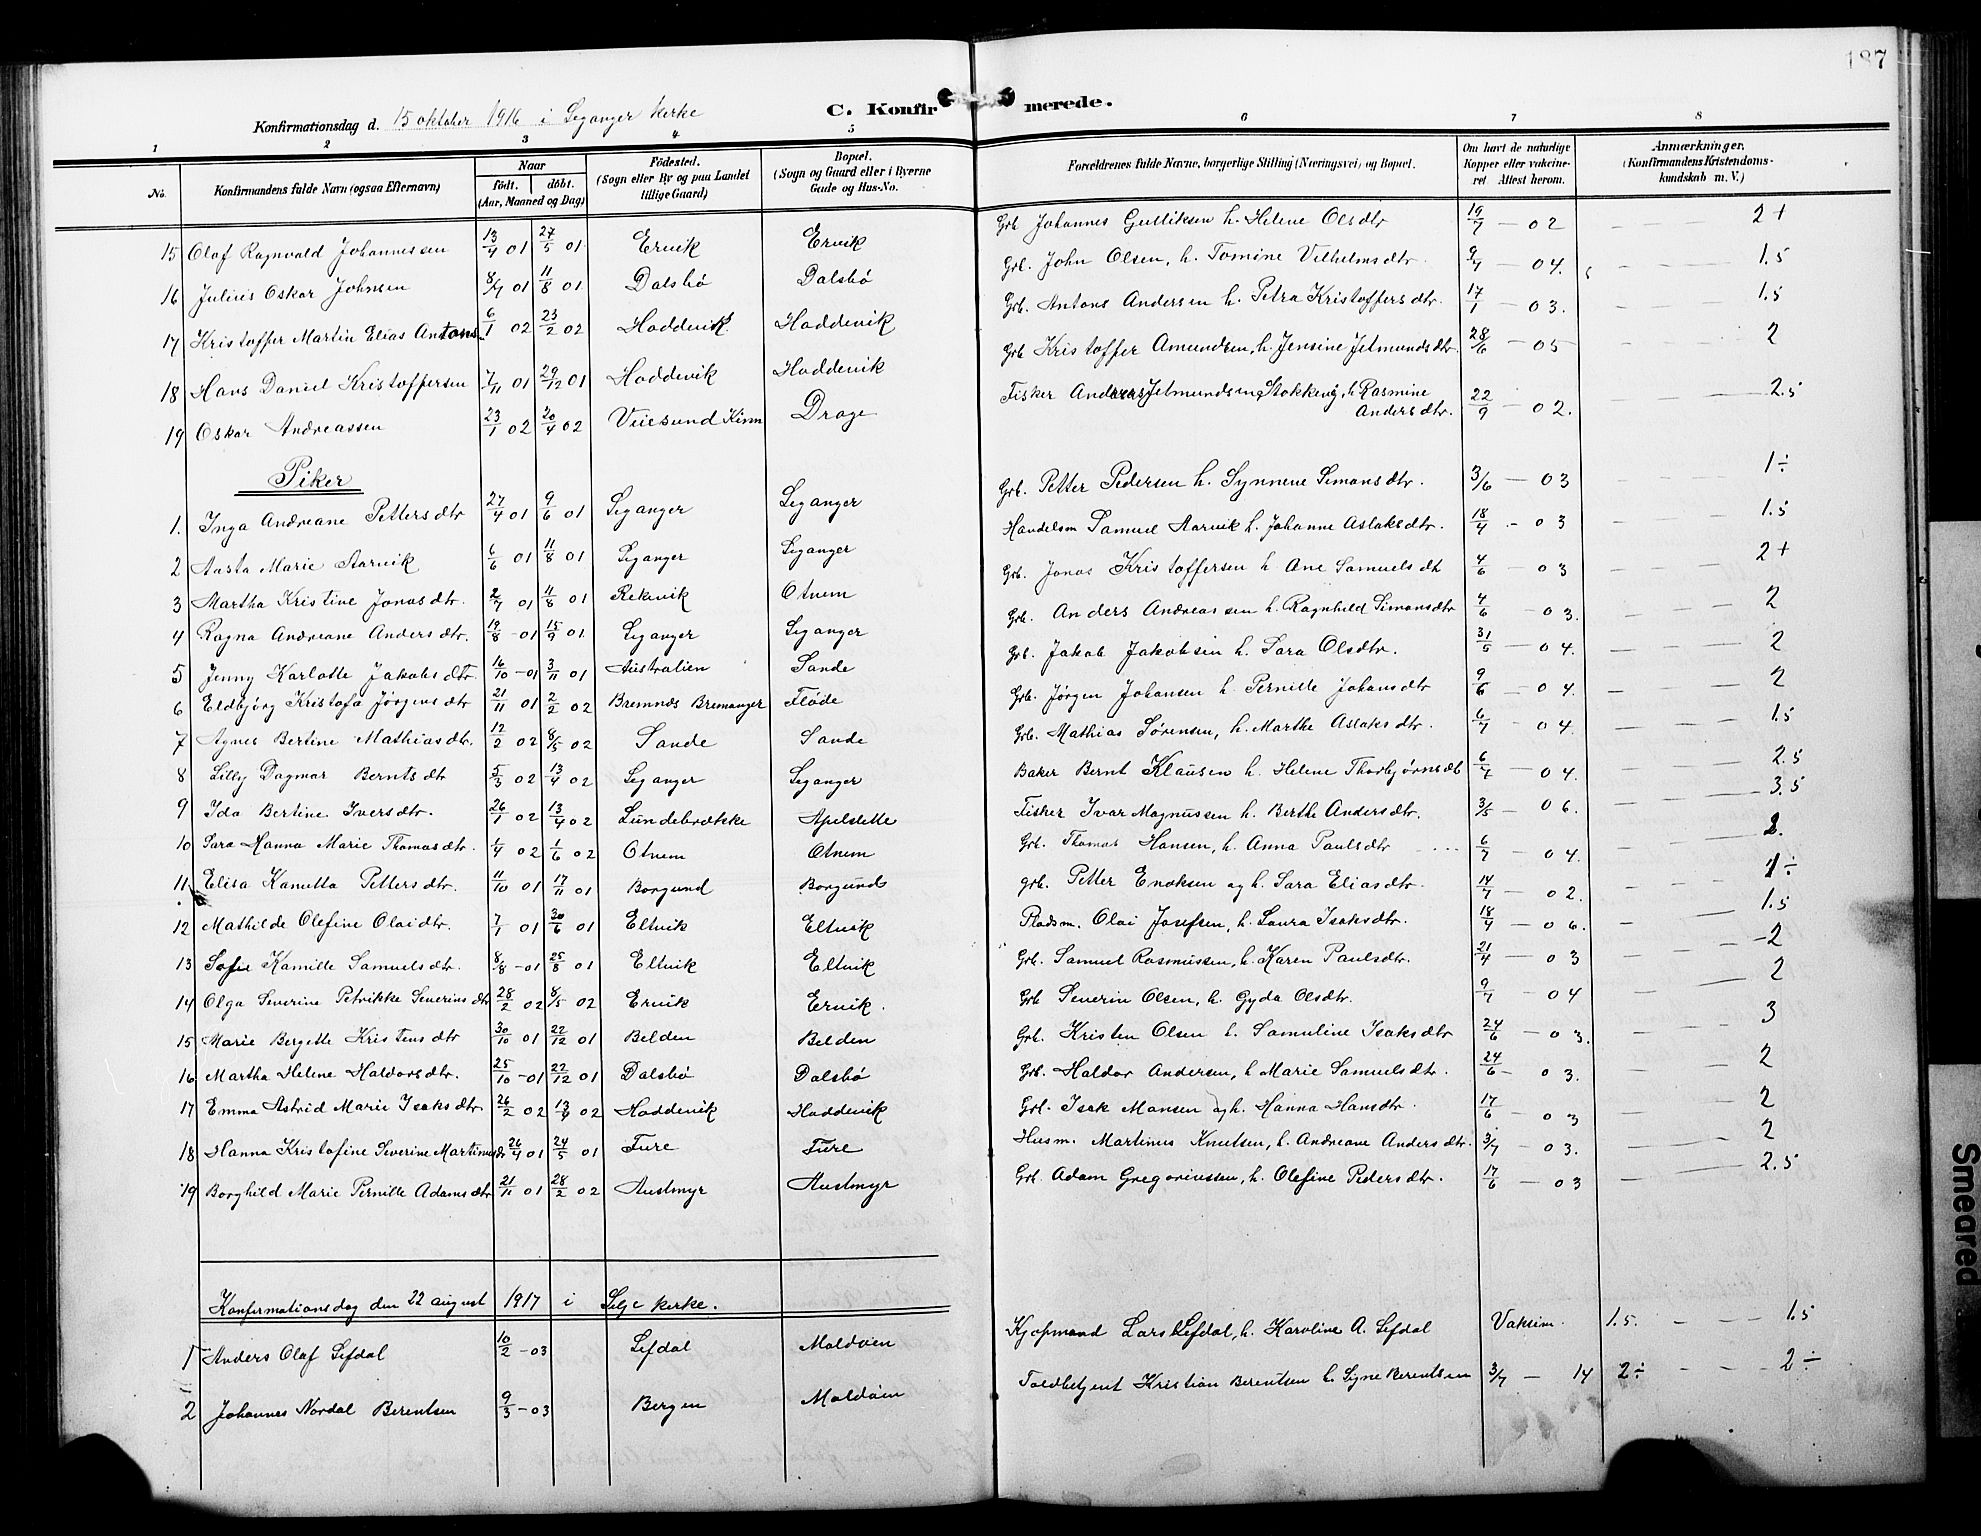 187
C. Konfirmerede.
Konfirmationsdag d. 15 oktober 1916 i Leganger kirke
1 2 3 4 5 6 7 8
No. Konfirmandens fulde Navn (ogsaa Efternavn) Naar født. døbt. (Aar, Maaned og Dag) Fødested. (Sogn eller By og paa Landet tillige Gaard) Bopæl. (Sogn og Gaard eller i Byerne Gade og Hus-No. Forældrenes fulde Navne, borgerlige Stilling (Næringsvei) og Bopæl. Om havt de naturlige Kopper eller vaccineret Attest herom. Anmærkninger. (Konfirmandens Kristendomskundskab m. V.)
15 Olaf Ragnvald Johannessen 13/4 01 27/5 01 Ervik Ervik Grb Johannes Gulliksen h. Helene Olsdtr 19/7 — 02 — — — 2+
16 Julius Oskar Johnsen 8/7 01 11/8 01 Dalsbø Dalsbø Grb. John Olsen, h. Tomine Vilhelmsdtr. 9/7 — 04. — — — 1.5
17 Kristoffer Martin Elias Antons. 6/1 02 23/2 02 Hoddevik Hoddevik Grb. Antons Andersen h. Petra Kristoffersdtr. 17/1 — 03. — — — 1.5
18 Hans Daniel Kristoffersen 7/11 01 29/12 01 Hoddevik Hoddevik Grb Kristoffer Amundsen, h. Jensine Jetmundsdtr. 28/6 — 05 — — — 2
19 Oskar Andreassen 23/1 02 20/4 02 Kinn Drage Fisker Andreas Jetmundsen Stokkeng, h Rasmine Andersdtr. 22/9 — 02. — — — 2.5
Piker
1. Inga Andreane Pettersdtr 27/4 01 9/6 01 Leganger Leganger Grb. Petter Pedersen h. Synnene Simonsdtr. 3/6 — 03 — — — 1÷
2 Aasta Marie Aarvik 6/6 01 11/8 01 Leganger Leganger Handelsm Samuel Aarvik h. Johanne Aslaksdtr. 18/4 — 03 — — — 1.5
3 Martha Kristine Jonasdtr. 2/7 01 11/8 01 Rekvik Otnem Grb. Jonas Kristoffersen h. Ane Samuelsdt 4/6 — 03 — — — 2+
4 Ragna Andreane Andersdtr. 19/8 — 01 15/9 01. Leganger Leganger Grb. Anders Andreassen h. Ragnhild Simonsdtr 4/6 — 03. — — — 2
5 Jenny Karlotte Jakobsdtr. 16/10 — 01 3/11 01 Australien Sande Grb. Jakob Jakobsen h. Sara Olsdtr. 31/5 — 04. — — — 2
6 Eldbjørg Kristofa Jørgensdtr 21/11 01 2/2 02 Bremnes Bremanger Fløde Grb. Jørgen Johansen h. Pernille Johansdtr 9/6 — 04. — — — 2
7 Agnes Bertine Mathiasdtr. 12/2 02 8/5 02 Sande Sande Grb. Mathias Sørensen, h. Marthe Aslaksdtr. 6/7 — 04 — — — 1.5
8 Lilly Dagmar Berntsdtr 5/3 02 13/4 02 Leganger Leganger Baker Bernt Klausen h. Helene Thorbjørnsdt 6/7 — 04. — — — 2.5
9 Ida Bertine Iversdtr. 26/1 02 13/4 02 Lundebrække Apelsette Fisker Ivar Magnussen h. Berthe Andersdtr. 3/5 — 06. — — — 3.5
10 Sara Hanna Marie Thomasdtr. 1/4 02 1/6 02 Otnem Otnem Grb. Thomas Hansen, h. Anna Paulsdtr 6/7 — 04. — — — 2.
11. Elisa Kamilla Pettersdtr. 11/10 01 17/11 01 Borgund Borgund grb. Petter Enoksen og h. Sara Eliasdtr. 14/7 — 02. — — — 1÷
12 Mathilde Olefine Olaidtr. 7/1 01 30/6 01 Eltvik Eltvik Pladsm. Olai Josefsen, h. Laura Isaksdtr. 18/4 — 06. — — — 1.5
13 Sofie Kamille Samuelsdtr. 8/8 — 01 25/8 01 Eltvik Eltvik Grb. Samuel Rasmussen, h. Karen Paulsdtr. 21/4 — 03 — — — 2
14 Olga Severine Petrikke Severinsdtr 28/2 02 8/5 02 Ervik Ervik. Grb Severin Olsen, h. Gyda Olsdtr. 9/7 — 04 — — — 2
15 Marie Bergette Kristensdtr 30/10 01 22/12 01 Belden Belden Grb. Kristen Olsen h. Samuline Isaksdtr 24/6 — 03. — — — 3
16 Martha Helene Haldorsdtr. 25/10 — 01 22/12 01 Dalsbø Dalsbø Grb. Haldor Andersen, h Marie Samuelsdtr. 24/6 — 03. — — — 2
17 Emma Astrid Marie Isaksdtr. 26/2 02 13/4 02 Hoddevik Hoddevik Grb. Isak Monsen og h. Hanna Hansdtr. 17/6 — 03 — — — 2
18 Hanna Kristofine Severine Martinusdtr 26/4 01 24/5 01 Fure Fure Husm. Martinus Knutsen, h. Andreane Andersdtr. 3/7 03. — — — 2
19 Borghild Marie Pernille Adamsdtr 21/11 01 28/2 02 Austmyr Austmyr Grb. Adam Gregoriussen, h. Olefine Pedersdtr. 17/6 — 03 — — — 2.5
Konfirmationsdag den 22 august 1917 i Selje kirke.
1 Anders Olaf Lefdal 10/2 — 03 Lefdal Moldøen Kjøpmand Lars Lefdal, h. Karoline A. Lefdal Vaksin. 1.5. — — — 1.5
2 Johannes Nordal Berentsen 9/3 — 03 Bergen Moldøen Toldbetjent Kristian Berentsen h. Signe Berentsen 3/7 — 14 2÷ — — — 2÷
Smeared